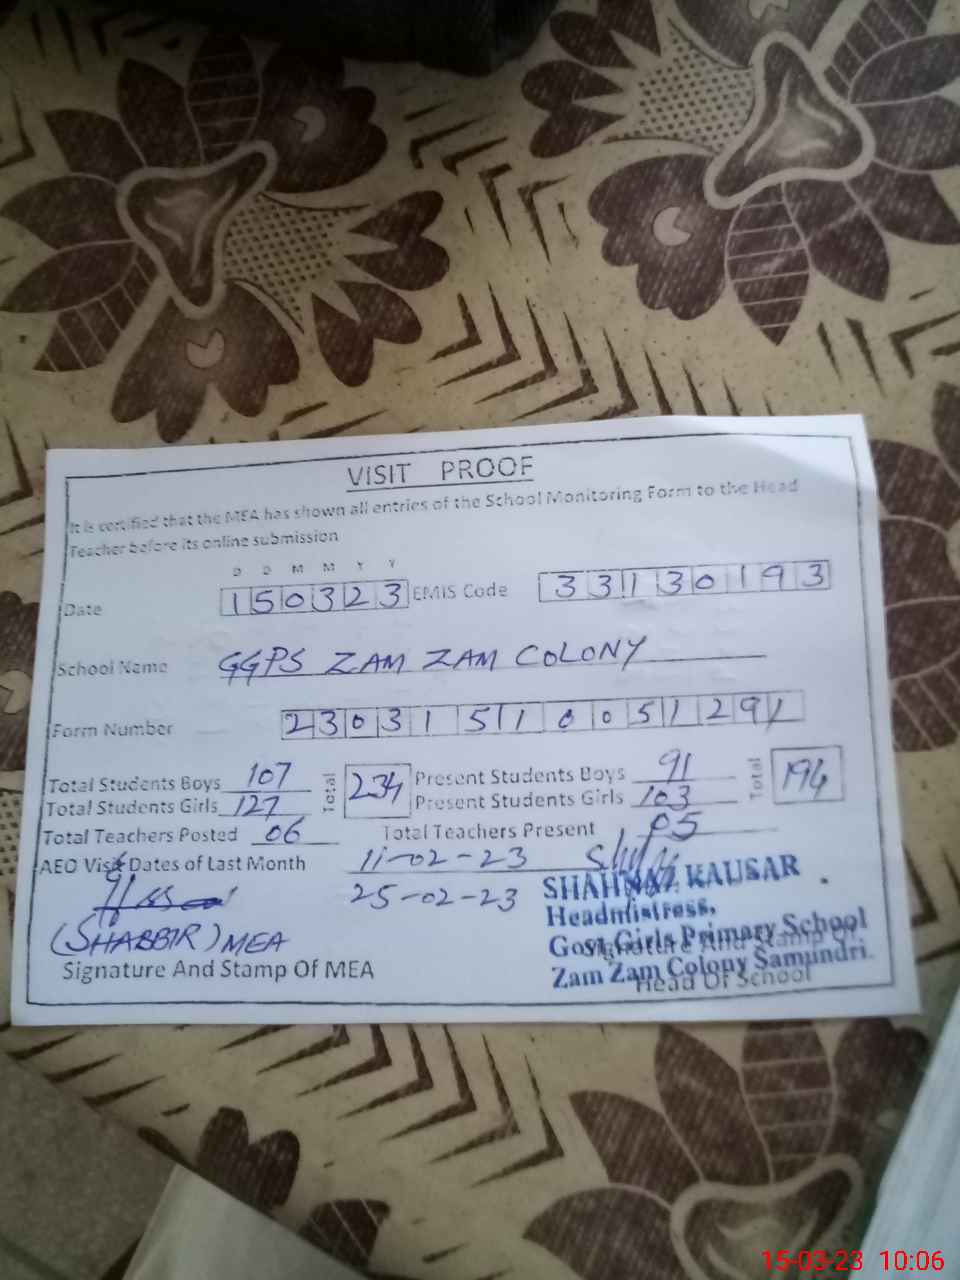 VISIT PROOF
It is certified that the MEA has shown all entries of the School Monitoring Form to the Head
Teacher before its online submission
D D M M Y Y
Date 150323 EMIS Code 33130193
School Name GGPS ZAM ZAM COLONY
Form Number 23031510051291
Total Students Boys 107 Total 234 Present Students Boys 91 Total 194
Total Students Girls 127 Present Students Girls 103
Total Teachers Posted 06 Total Teachers Present 05
AEO Visit Dates of Last Month 11-02-23
25-02-23
(SHABBIR) MEA
Signature And Stamp Of MEA
SHAHNAZ KAUSAR
Headmistress,
Govt. Girls Primary School
Zam Zam Colony Samundri.
Signature And Stamp Of
Head Of School
15-03-23 10:06